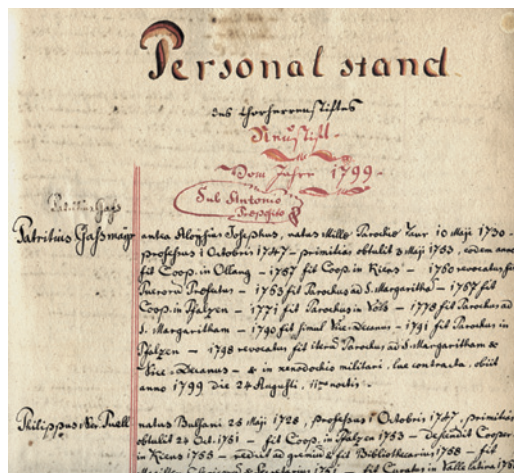 Personal stand
des Chorherrenstiftes
Neustift.
Vom Jahre 1799.
Sub Antonio
Præposito
Patritius Gaß
Patritius Gaßmayr antea Aloysius Josephus, natus Mills Parochiæ Taur 10 Maji 1730 -
professus 1 Octobris 1747 - primitias obtulit 3 Maji 1753, eodem anno
fit Coop. in Ollang - 1757 fit Coop. in Kiens - 1760 revocatus fit
Puerorum Præfectus - 1763 fit Parochus ad S. Margaritha - 1767 fit
Coop. in Pfalzen - 1771 fit Parochus in Völs - 1778 fit Parochus ad
S. Margaritham - 1790 fit simul Vice-Decanus - 1791 fit Parochus in
Pfalzen - 1798 revocatus fit iterũ Parochus ad S. Margaritham &
Vice-Decanus - & in xenodochio militari, lue contracta, obiit
anno 1799 die 24 Augusti, noctis.
Philippus Ner. Puell natus Bulsani 26 Maji 1728, professus 1 Octobris 1747, primitias
obtulit 24 Oct. 1751 - fit Coop. in Pfalzen 1753 - Coop.
in Kiens 1755 - fit Bibliothecarius 1758 - fit
1761 - fit Curatus in Valle latina 176